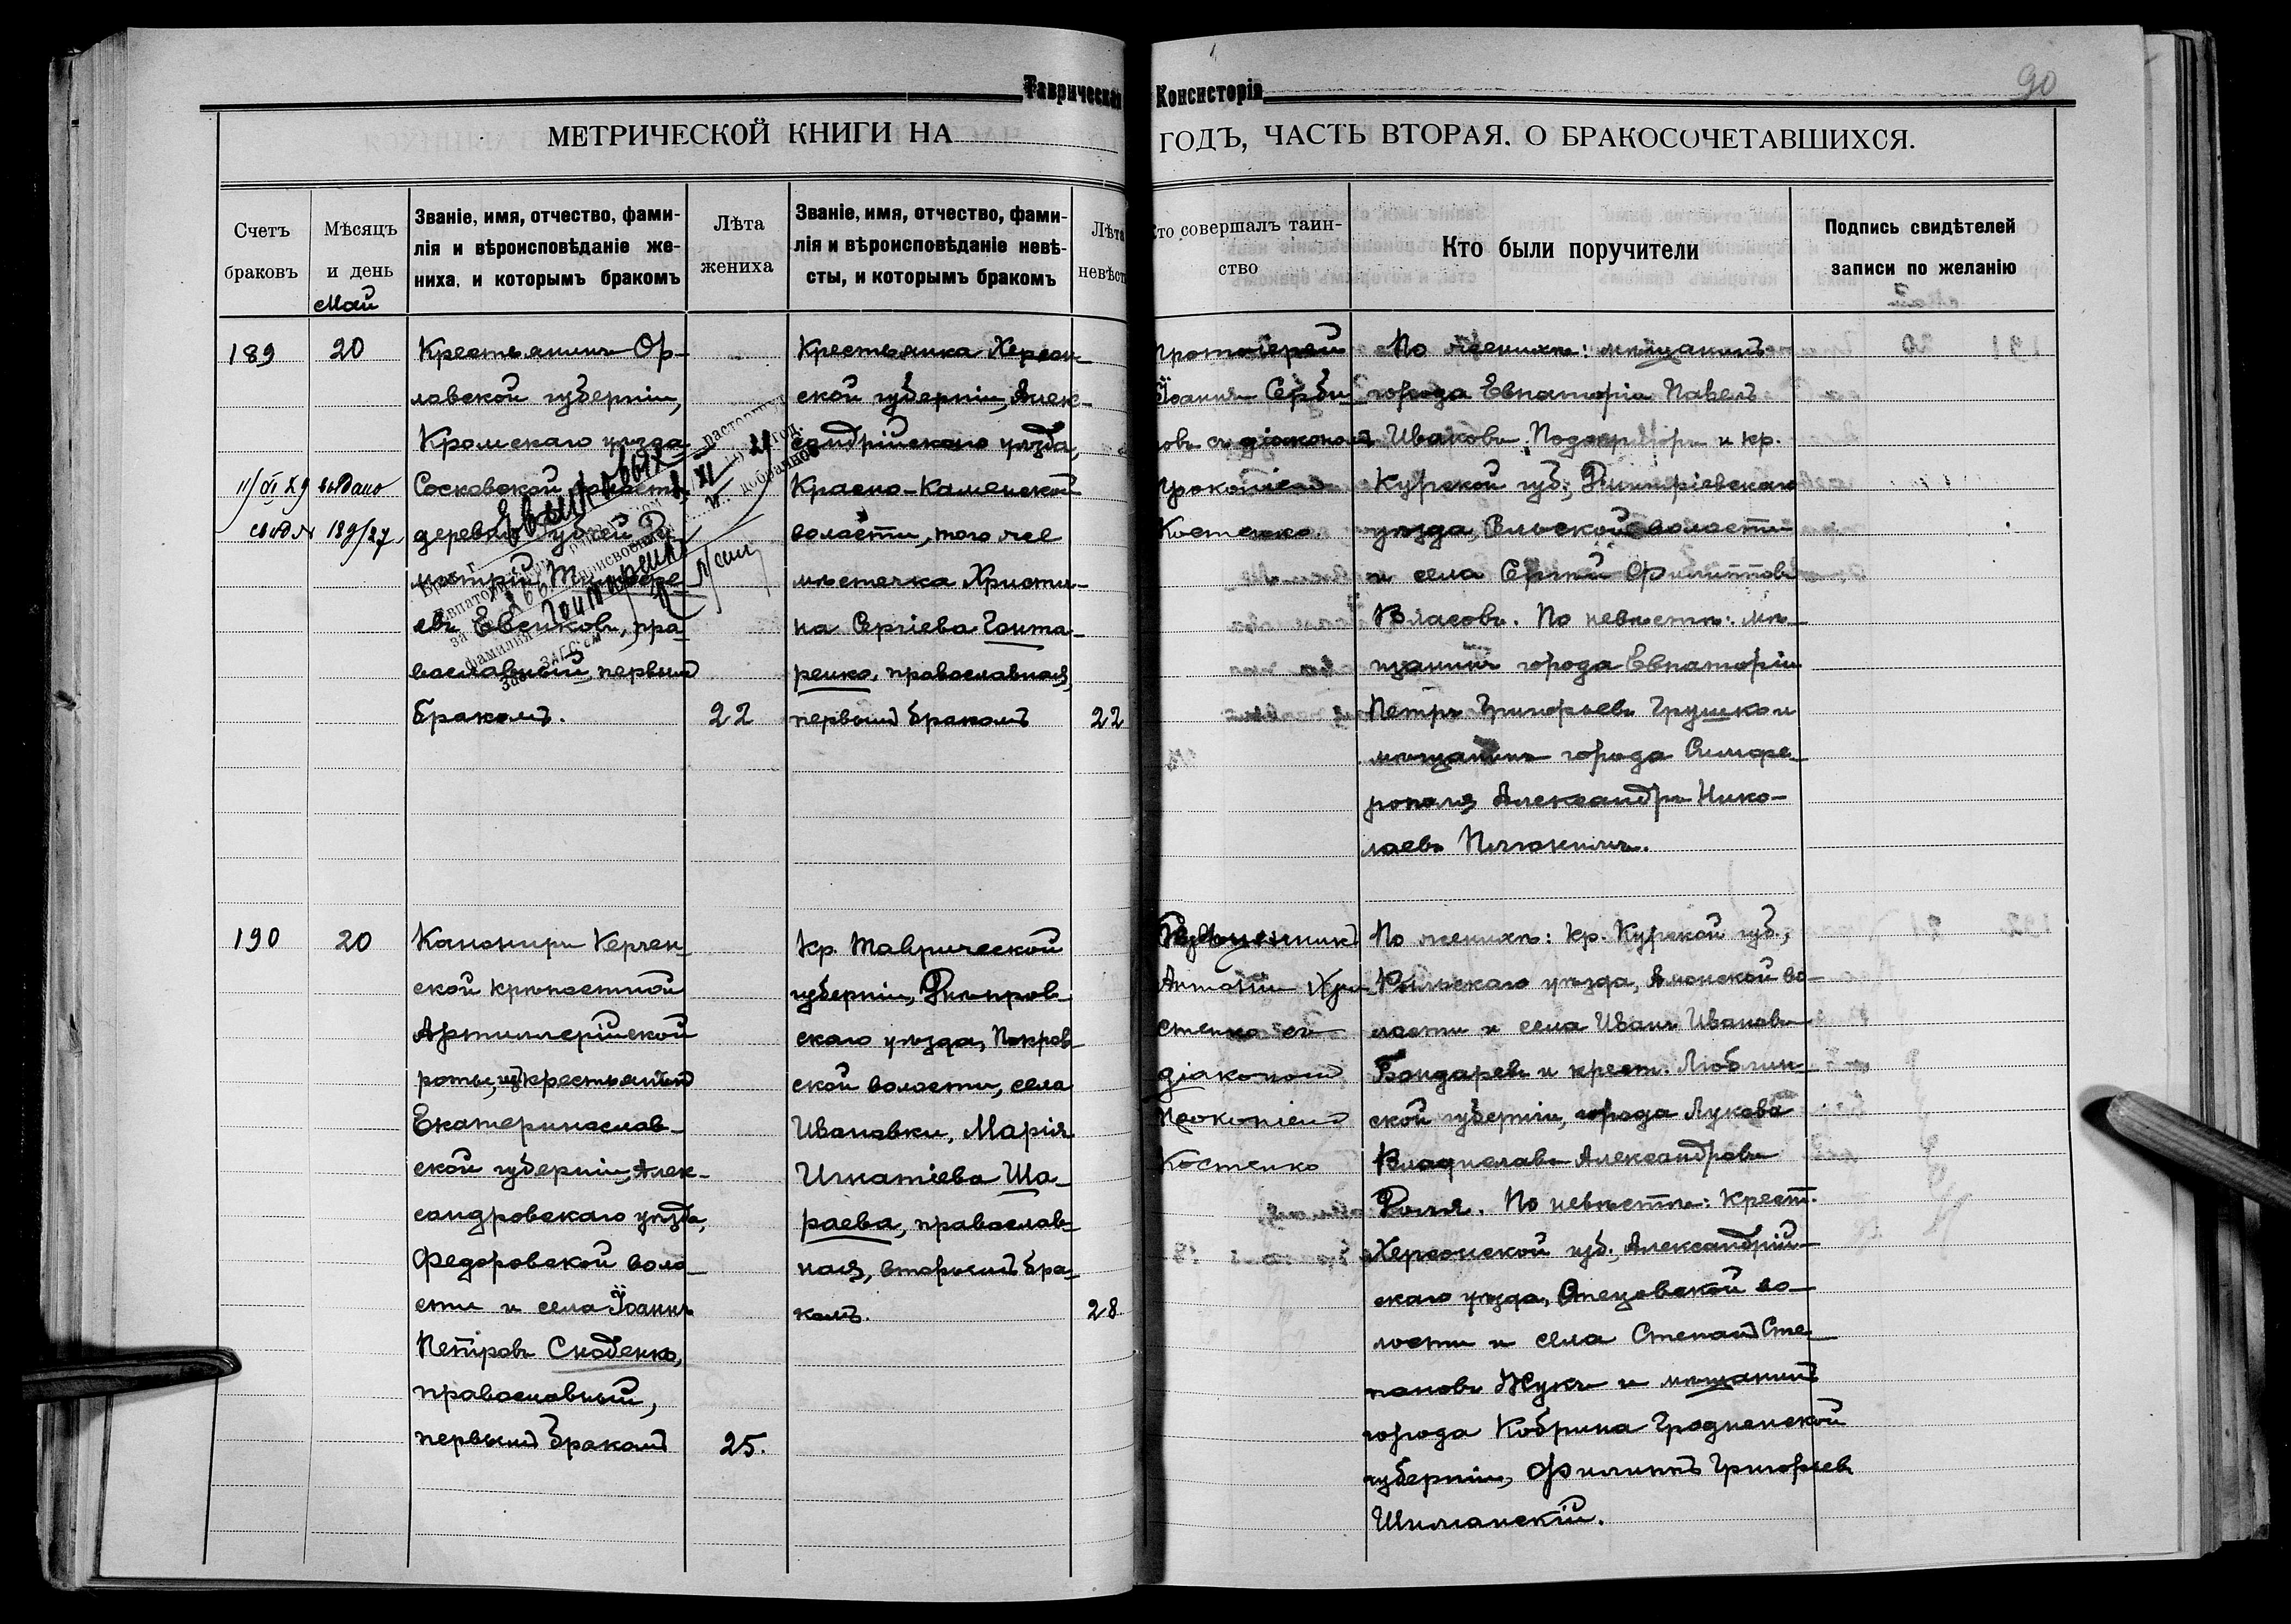 Таврическая Консисторія
90
МЕТРИЧЕСКОЙ КНИГИ НА ГОДЪ, ЧАСТЬ ВТОРАЯ. О БРАКОСОЧЕТАВШИХСЯ.
Счетъ
браковъ
Мѣсяцъ
и день
Май
Званіе, имя, отчество, фами-
лія и вѣроисповѣданіе же-
ниха, и которымъ бракомъ
Лѣта
жениха
Званіе, имя, отчество, фами-
лія и вѣроисповѣданіе невѣ-
сты, и которымъ бракомъ
Лѣта
невѣст
Кто совершалъ таин-
ство
Кто были поручители
Подпись свидѣтелей
записи по желанію
189
20
11/VI 29 выдано
свид № 189/27
Крестьянинъ Ор-
ловской губерніи,
Кромскаго уѣзда
Сосковской волости
деревни
митрій Тимофе-
евъ Евсиковъ, пра-
вославный, первымъ
бракомъ.
22
Крестьянка Херсон-
ской губерніи, Алек-
сандрійскаго уѣзда,
Красно-Каменской
волости, того же
мѣстечка Христи-
на Сергіева Гонта-
ренко, православная,
первымъ бракомъ
22
Протоіерей
Іоаннъ Серби-
новъ съ діакономъ
Прокопіемъ
Костенко
По женихѣ: мѣщанинъ
города Евпаторіи Павелъ
Иваковъ и кр.
Курской губ., Дмитріевскаго
уѣзда, волости
и села Сергѣй Филипповъ
Власовъ. По невѣстѣ: мѣ-
щанинъ города Евпаторіи
Петръ Григорьевъ Грушко и
мѣщанинъ города Симфе-
рополя Александръ Нико-
лаевъ
190
20
Канониръ Керчен-
ской крѣпостной
Артиллерійской
роты, изъ крестьянъ
Екатеринослав-
ской губерніи, Алек-
сандровскаго уѣзда,
Федоровской воло-
сти и села Іоаннъ
Петровъ Скобенко,
православный,
первымъ бракомъ
25.
Кр. Таврической
губерніи, Днѣпров-
скаго уѣзда, Покров-
ской волости, села
Ивановки, Марія
Игнатіева Ша-
раева, православ-
ная, вторымъ бра-
комъ.
28
Священникъ
Антоній Хри-
стенко съ
діакономъ
Прокопіемъ
Костенко
По женихѣ: кр. Курской губ.,
Рыльскаго уѣзда, Амонской во-
лости и села Иванъ Ивановъ
Бондаревъ и крест. Люблин-
ской губерніи, города Лукова
Владиславъ Александровъ
По невѣстѣ: крест.
Херсонской губ. Александрій-
скаго уѣзда, во-
лости и села Степанъ Сте-
пановъ Жукъ и мѣщанинъ
города Кобрина Гродненской
губерніи, Филиппъ Григорьевъ
Шиманскій.